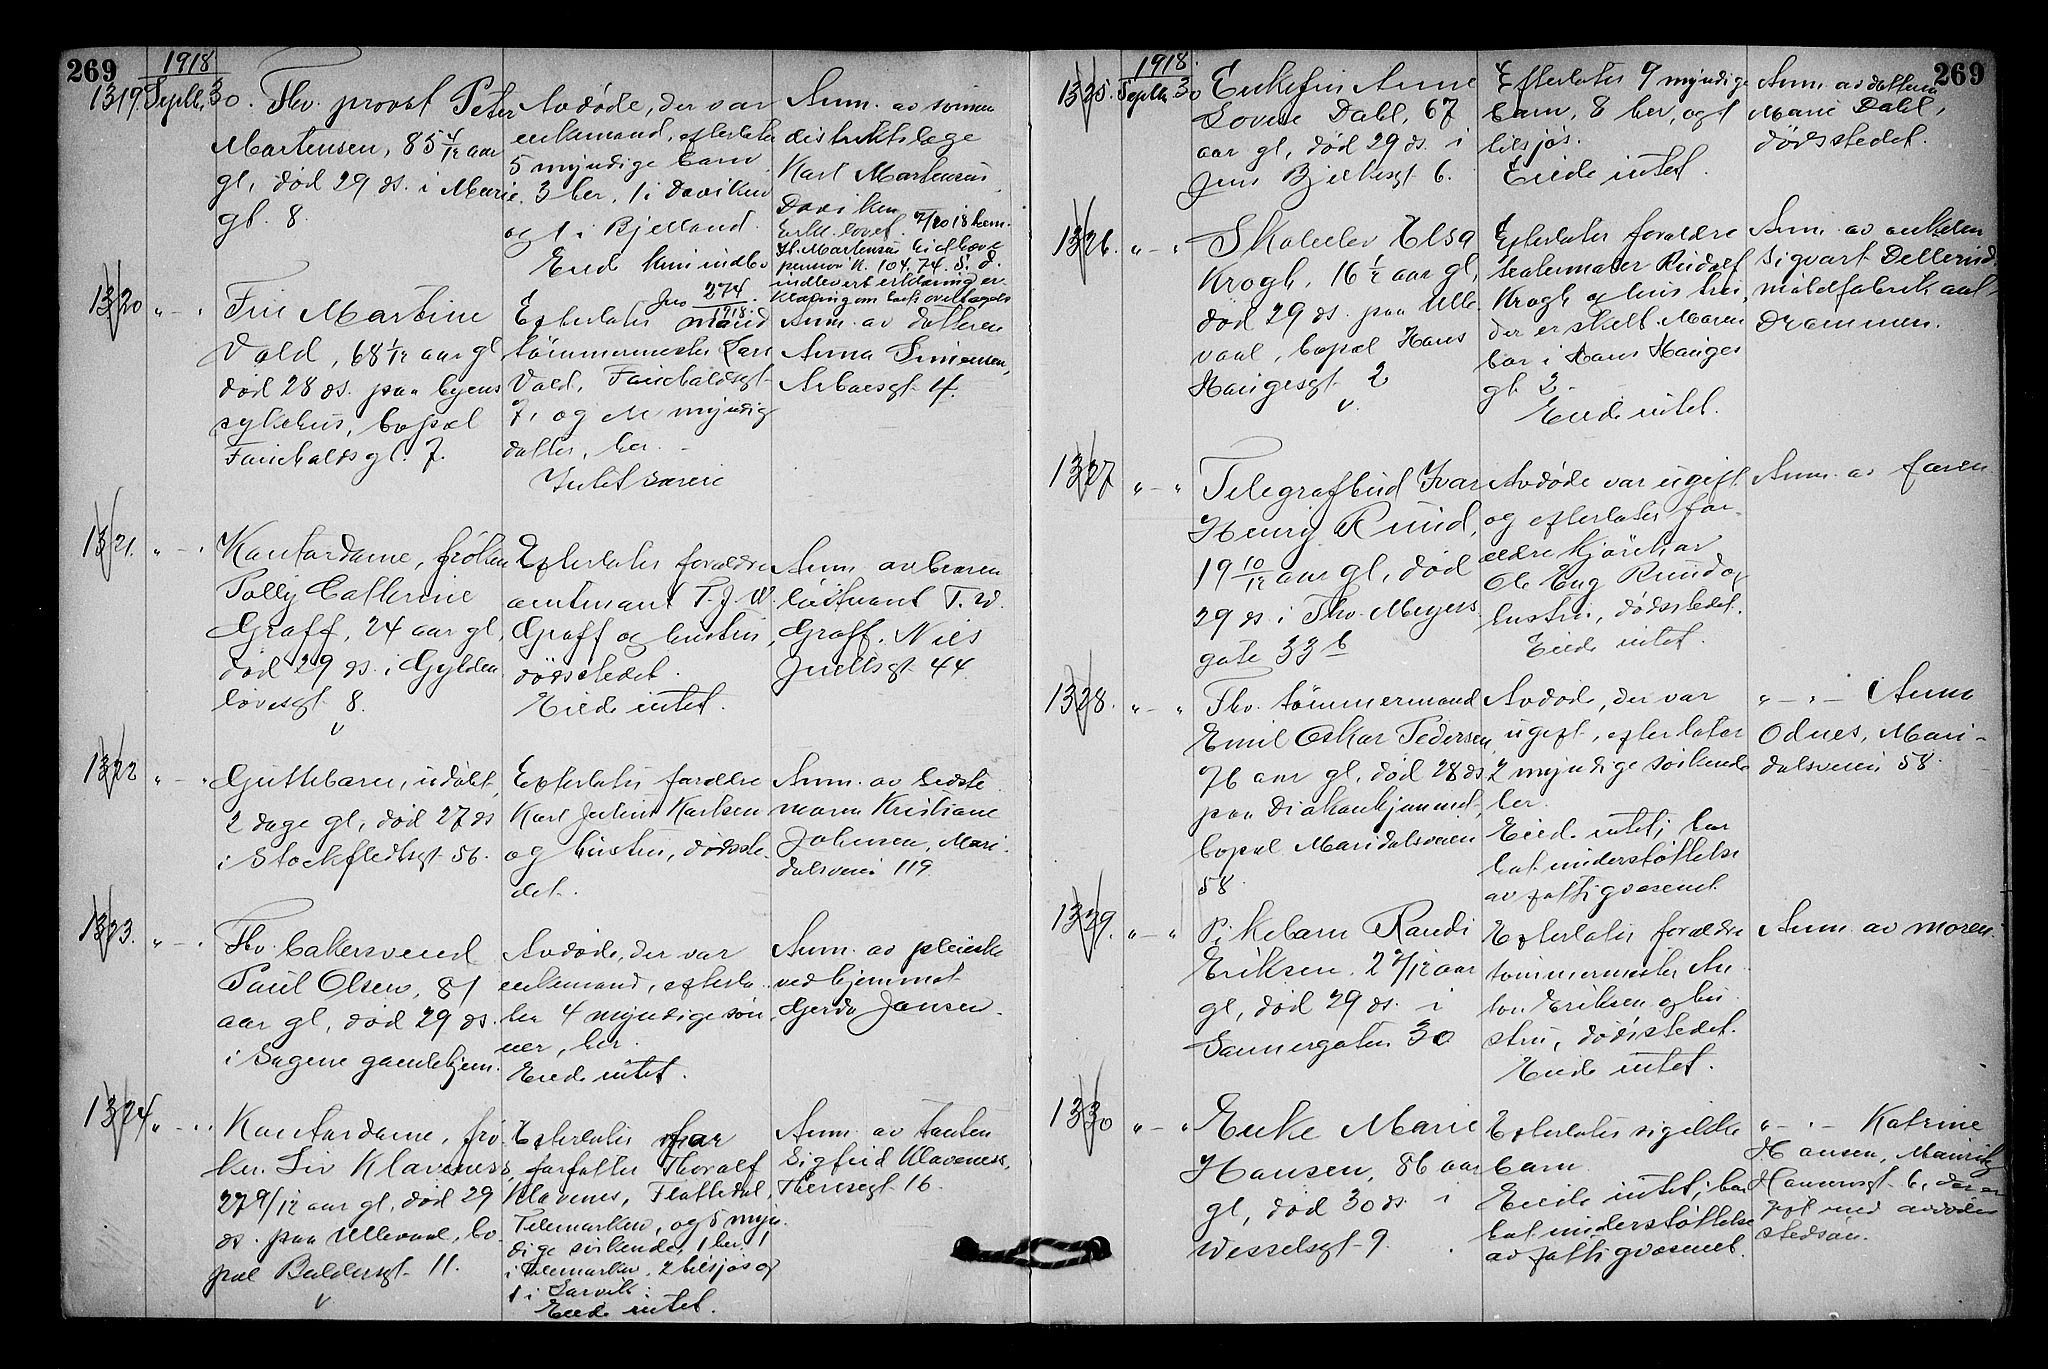 269
1918
1319. Septb. 30. Fhv. provst Peter
Martensen, 85 4/12 aar
gl, død 29 ds. i Marie
gt. 8.
Avdøde, der var
enkemand, efterlater
5 myndige barn
3 her, 1 i Daviken
og 1 i Bjelland.
Eiede kun indbo
Anm. av sønnen
distriktslæge
Karl Martensen,
Daviken
pension K. 104,74. S. D.
indlevert erklæring
1320 " — " Fru Martine
Vold, 68 1/12 aar gl,
død 28 ds. paa byens
sykehus, bopæl
Fauchaldsgt. 7.
Jns 274/1918.
Efterlater mand
tømmermester Lars
Vold, Fauchaldsgt
7, og en myndig
datter, her. –
Intet særeie
Anm. av datteren
Anna Simensen,
Arbosgt. 4.
1321. " — " Kontordame, frøken
Polly Cathrine
Graff, 24 aar gl,
død 29 ds. i Gylden
løvesgt 8.
v
Efterlater forældre
amtmand T. J. W.
Graff og hustru,
dødsstedet.
Eiede intet.
Anm. av broren
løitnant T. W.
Graff, Niels
Juelsgt. 44
1322 " — " Guttebarn, udøbt,
2 dage gl, død 27 ds
i Stockfledtsgt. 56.
Efterlater forældre
Karl Julius Karlsen
og hustru, dødsste-
det.
Anm. av bedste
moren Kristiane
Johnsen, Mari-
dalsveien 119
1323. " — " Fhv. bakersvend
Paul Olsen, 81
aar gl, død 29 ds.
i Sagene gamlehjem.
Avdøde, der var
enkemand, efterla-
ter 4 myndige søn
ner, her.
Eiede intet.
Anm. av pleierske
ved hjemmet
Gjerda Jansen.
1324 " — " Kontordame, frø-
ken Liv Klaveness,
27 9/12 aar gl, død 29
ds. paa Ullevaal, bo-
pæl Baldersgt. 11.
v
Efterlater far
forfatter Thoralf
Klavenes, Flatedal,
Telemarken, og 5 myn-
dige søskende, 1 her, 1
i Telemarken, 2 tilsjøs og
1 i Larvik.
Eiede intet.
Anm. av tanten
Sigfrid Klaveness,
Theresegt. 16.
269
1918.
1325. Septb. 30 Enkefru Anne
Lovise Dahl, 67
aar gl, død 29 ds. i
Jens Bjelkesgt 6.
Efterlater 9 myndige
barn, 8 her, og 1
tilsjøs.
Eiede intet.
Anm. av datteren
Marie Dahl,
dødsstedet.
1326. " — " Skoleelev Elsa
Krogh, 16 1/2 aar gl,
død 29 ds. paa Ulle
vaal, bopæl Hans
Haugesgt. 2
v.
Efterlater forældre
Rudolf
Krogh og hustru,
der er skilt. Moren
bor i Hans Hauges
gt. 2.
Eiede intet.
Anm. av onkelen
Sigvart
Drammen.
1327 " — " Telegrafbud Ivar
Henry Ruud,
19 10/12 aar gl, død
29 ds i Thv. Meyers
gate 33 b
Avdøde var ugift
og efterlater for-
ældre kjørek. av
Ole Eng Ruud og
hustru, dødsstedet.
Eiede intet.
Anm. av faren
1328. " — " Fhv. tømmermand
Emil Oskar Pedersen,
76 aar gl, død 28 ds
paa Diakonhjemmet,
bopæl Maridalsveien
58.
Avdøde, der var
ugift, efterlater
2 myndige søskende
her.
Eiede intet; har
hat understøttelse
av fattigvæsenet
" — " — Anna
Odnes, Mari-
dalsveien 58.
1329. " — " Pikebarn Randi
Eriksen, 2 7/12 aar
gl, død 29 ds. i
Sannergaten 30
Efterlater forældre
tømmermester An-
ton Eriksen og hu
stru, dødsstedet.
Eiede intet.
Anm. av moren.
1330 " — " Enke Marie
Hansen, 86 aar
gl, død 30 ds i
Wesselsgt. 9.
Efterlater sigelike
barn.
Eiede intet; har
hat understøttelse
av fattigvæsenet.
" — " — Katrine
Hansen,
Hansensgt 6, der er
gift med avdødes
stedsøn.